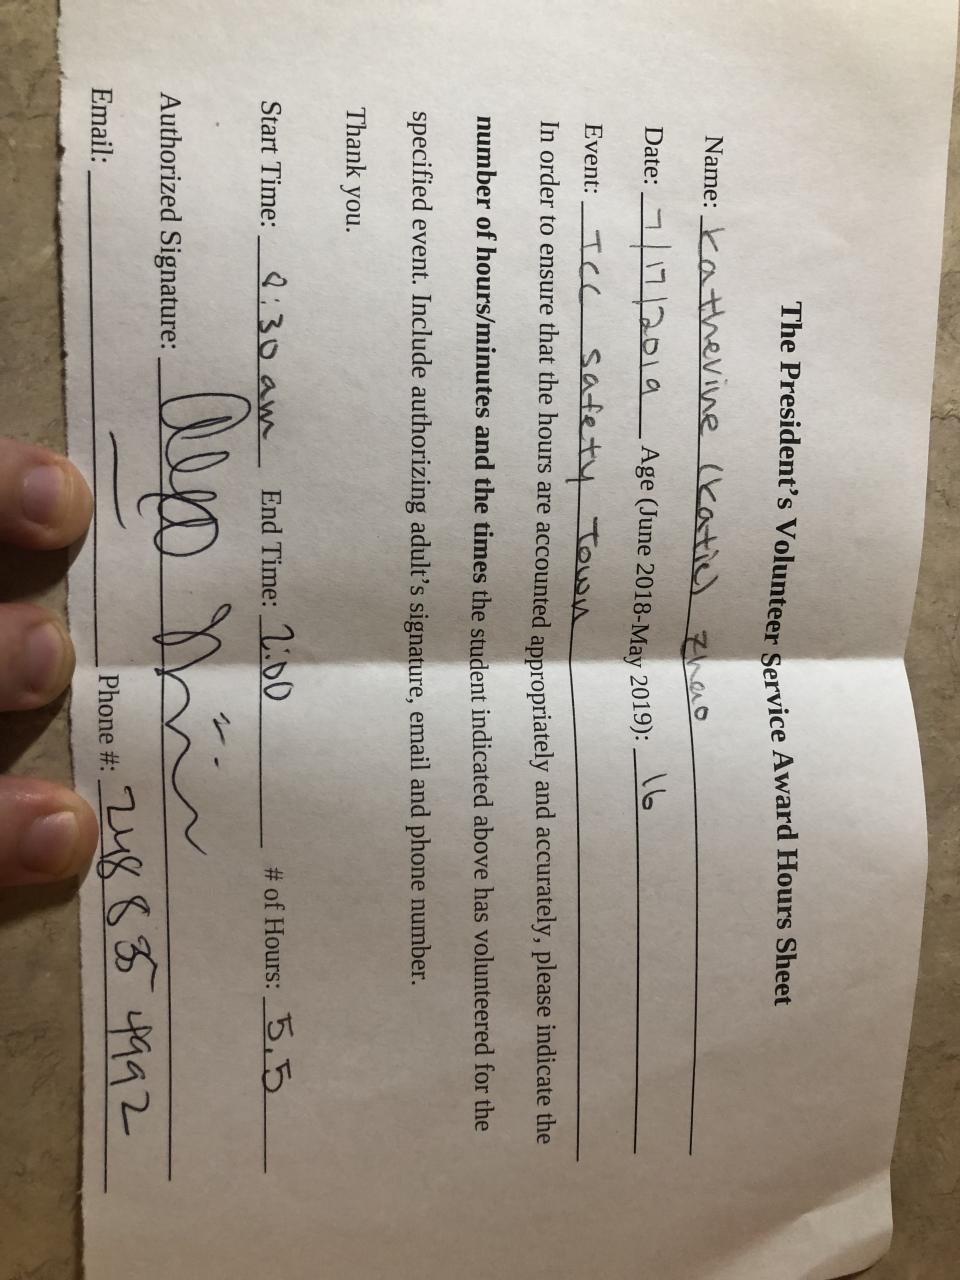 The President's Volunteer Service Award Hours Sheet
Name: Katherine (Katie) Zhao
Date: 7/17/2019 Age (June 2018-May 2019): 16
Event: TCC Safety Town
In order to ensure that the hours are accounted appropriately and accurately, please indicate the
number of hours/minutes and the times the student indicated above has volunteered for the
specified event. Include authorizing adult's signature, email and phone number.
Thank you.
Start Time: 8:30 am End Time: 2:00 # of Hours: 5.5
Authorized Signature:
Email: Phone #: 248 835 4992